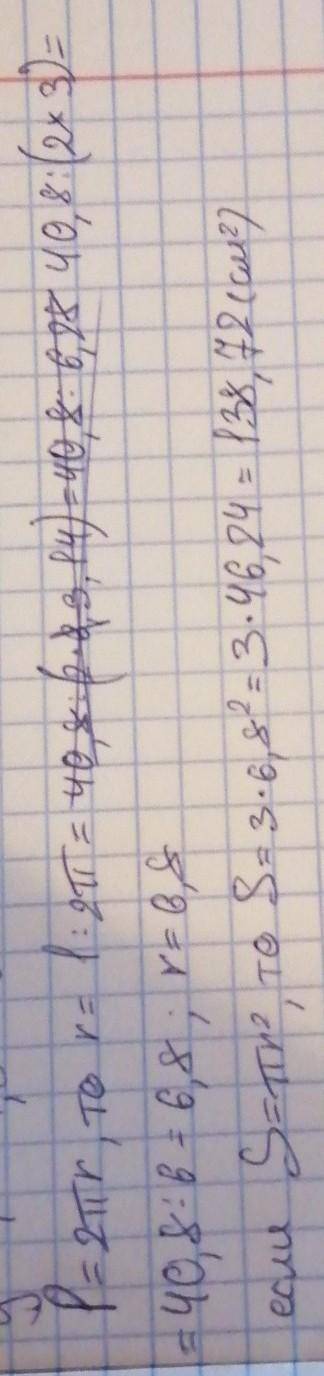 P = 2πr, то r = P : 2π = 40,8 : (2 · 3,14) = 40,8 : 6,28 40,8 : (2 × 3) =
= 40,8 : 6 = 6,8 ; r = 6,8
если S = πr², то S = 3 · 6,8² = 3 · 46,24 = 138,72 (см²)